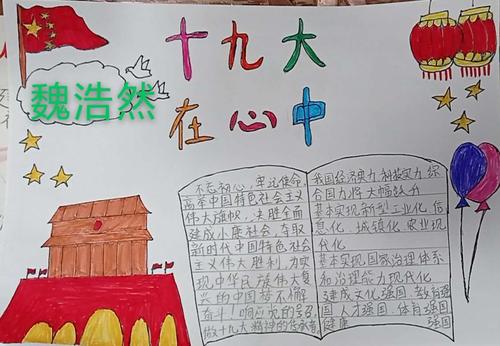 十九大
魏浩然
在心中
不忘初心，牢记使命，
高举中国特色社会主义
伟大旗帜，决胜全面
建成小康社会，夺取
新时代中国特色社会
主义伟大胜利，为实
现中华民族伟大复
兴的中国梦不懈
奋斗！响应党的号召，
做十九大精神的传承者
我国经济实力，科技实力，综
合国力将大幅跃升
基本实现新型工业化，信
息化，城镇化，农业现
代化
基本实现国家治理体系
和治理能力现代化
建成文化强国 教育强
国 人才强国 体育强国
健康 强国